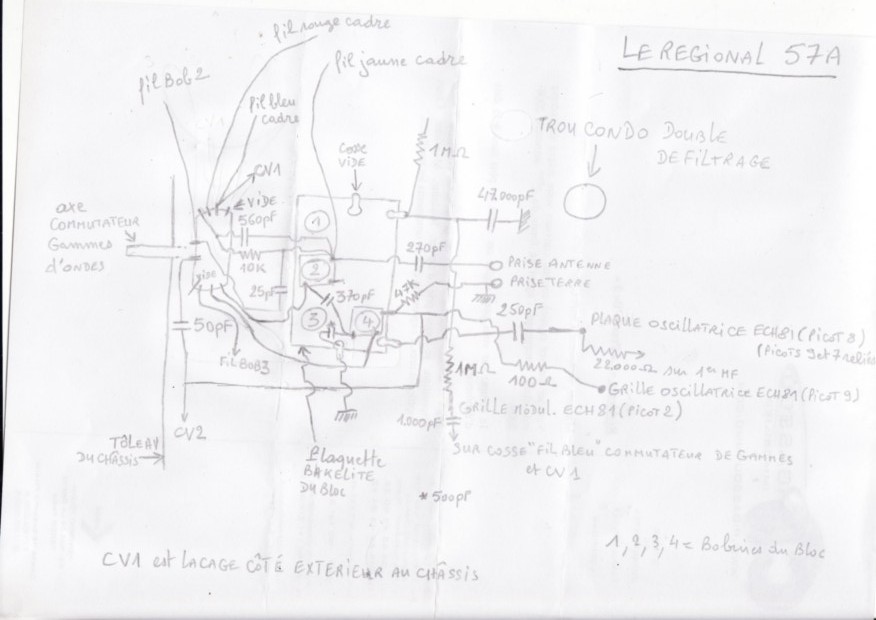 LE REGIONAL 57A
fil rouge cadre
fil jaune cadre
fil Bob 2
fil bleu
cadre
CV1
VIDE
Cosse
VIDE
1MΩ
TROU CONDO DOUBLE
DE FILTRAGE
47.000pF
axe
COMMUTATEUR
Gammes
d'ONDES
560pF
10K
1
2
3
4
VIDE
25pF
370pF
47K
270pF
PRISE ANTENNE
PRISE TERRE
250pF
50pF
FIL BOB3
PLAQUE OSCILLATRICE ECH81 (PICOT 8)
(PICOTS 9 et 7 reliés
22.000Ω sur 1er MF
1MΩ
100Ω
GRILLE OSCILLATRICE ECH81 (PICOT 9)
GRILLE MODUL. ECH81 (PICOT 2)
1.000pF
CV2
TÔLE AV
DU CHÂSSIS
SUR COSSE "FIL BLEU" COMMUTATEUR DE GAMMES
et CV1
Plaquette
BAKELITE
DU BLOC
* 500pF
1, 2, 3, 4 = Bobines du Bloc
CV1 est LA CAGE CÔTÉ EXTERIEUR AU CHÂSSIS